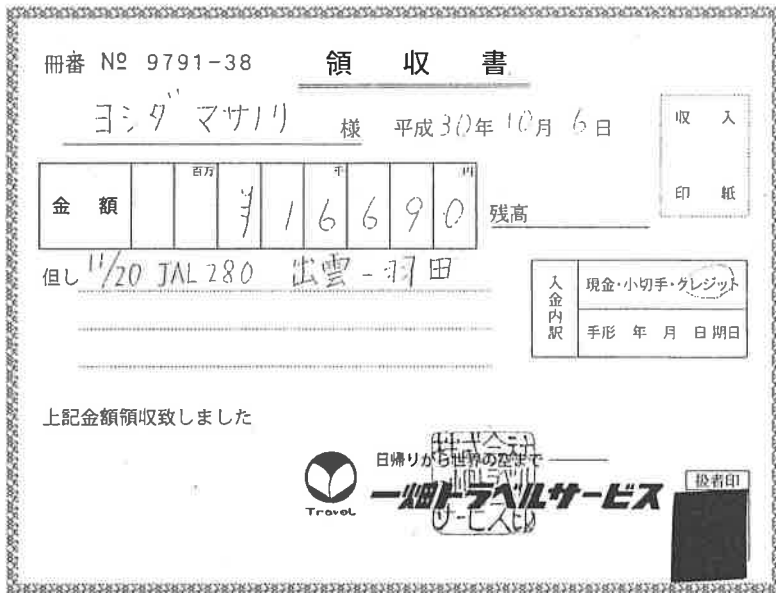 冊番 № 9791-38 領収書
ヨシダマサノリ 様 平成30年10月6日
収入
印紙
金額 百万 千 円
¥16690 残高
但し 11/20 JAL280 出雲-羽田
入金内訳 現金・小切手・クレジット
手形 年 月 日期日
上記金額領収致しました
日帰りから世界の空まで
一畑トラベルサービス
Travel
扱者印
株式会社
一畑トラベル
サービス印